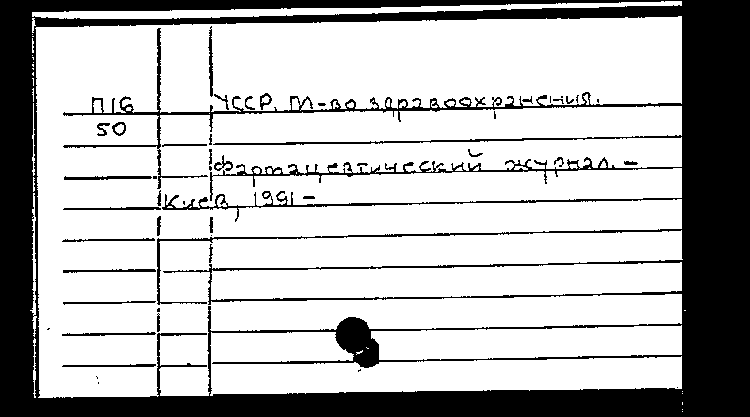 П16 УССР. М-во здравоохранения.
50
Фармацевтический журнал. –
Киев, 1991 –